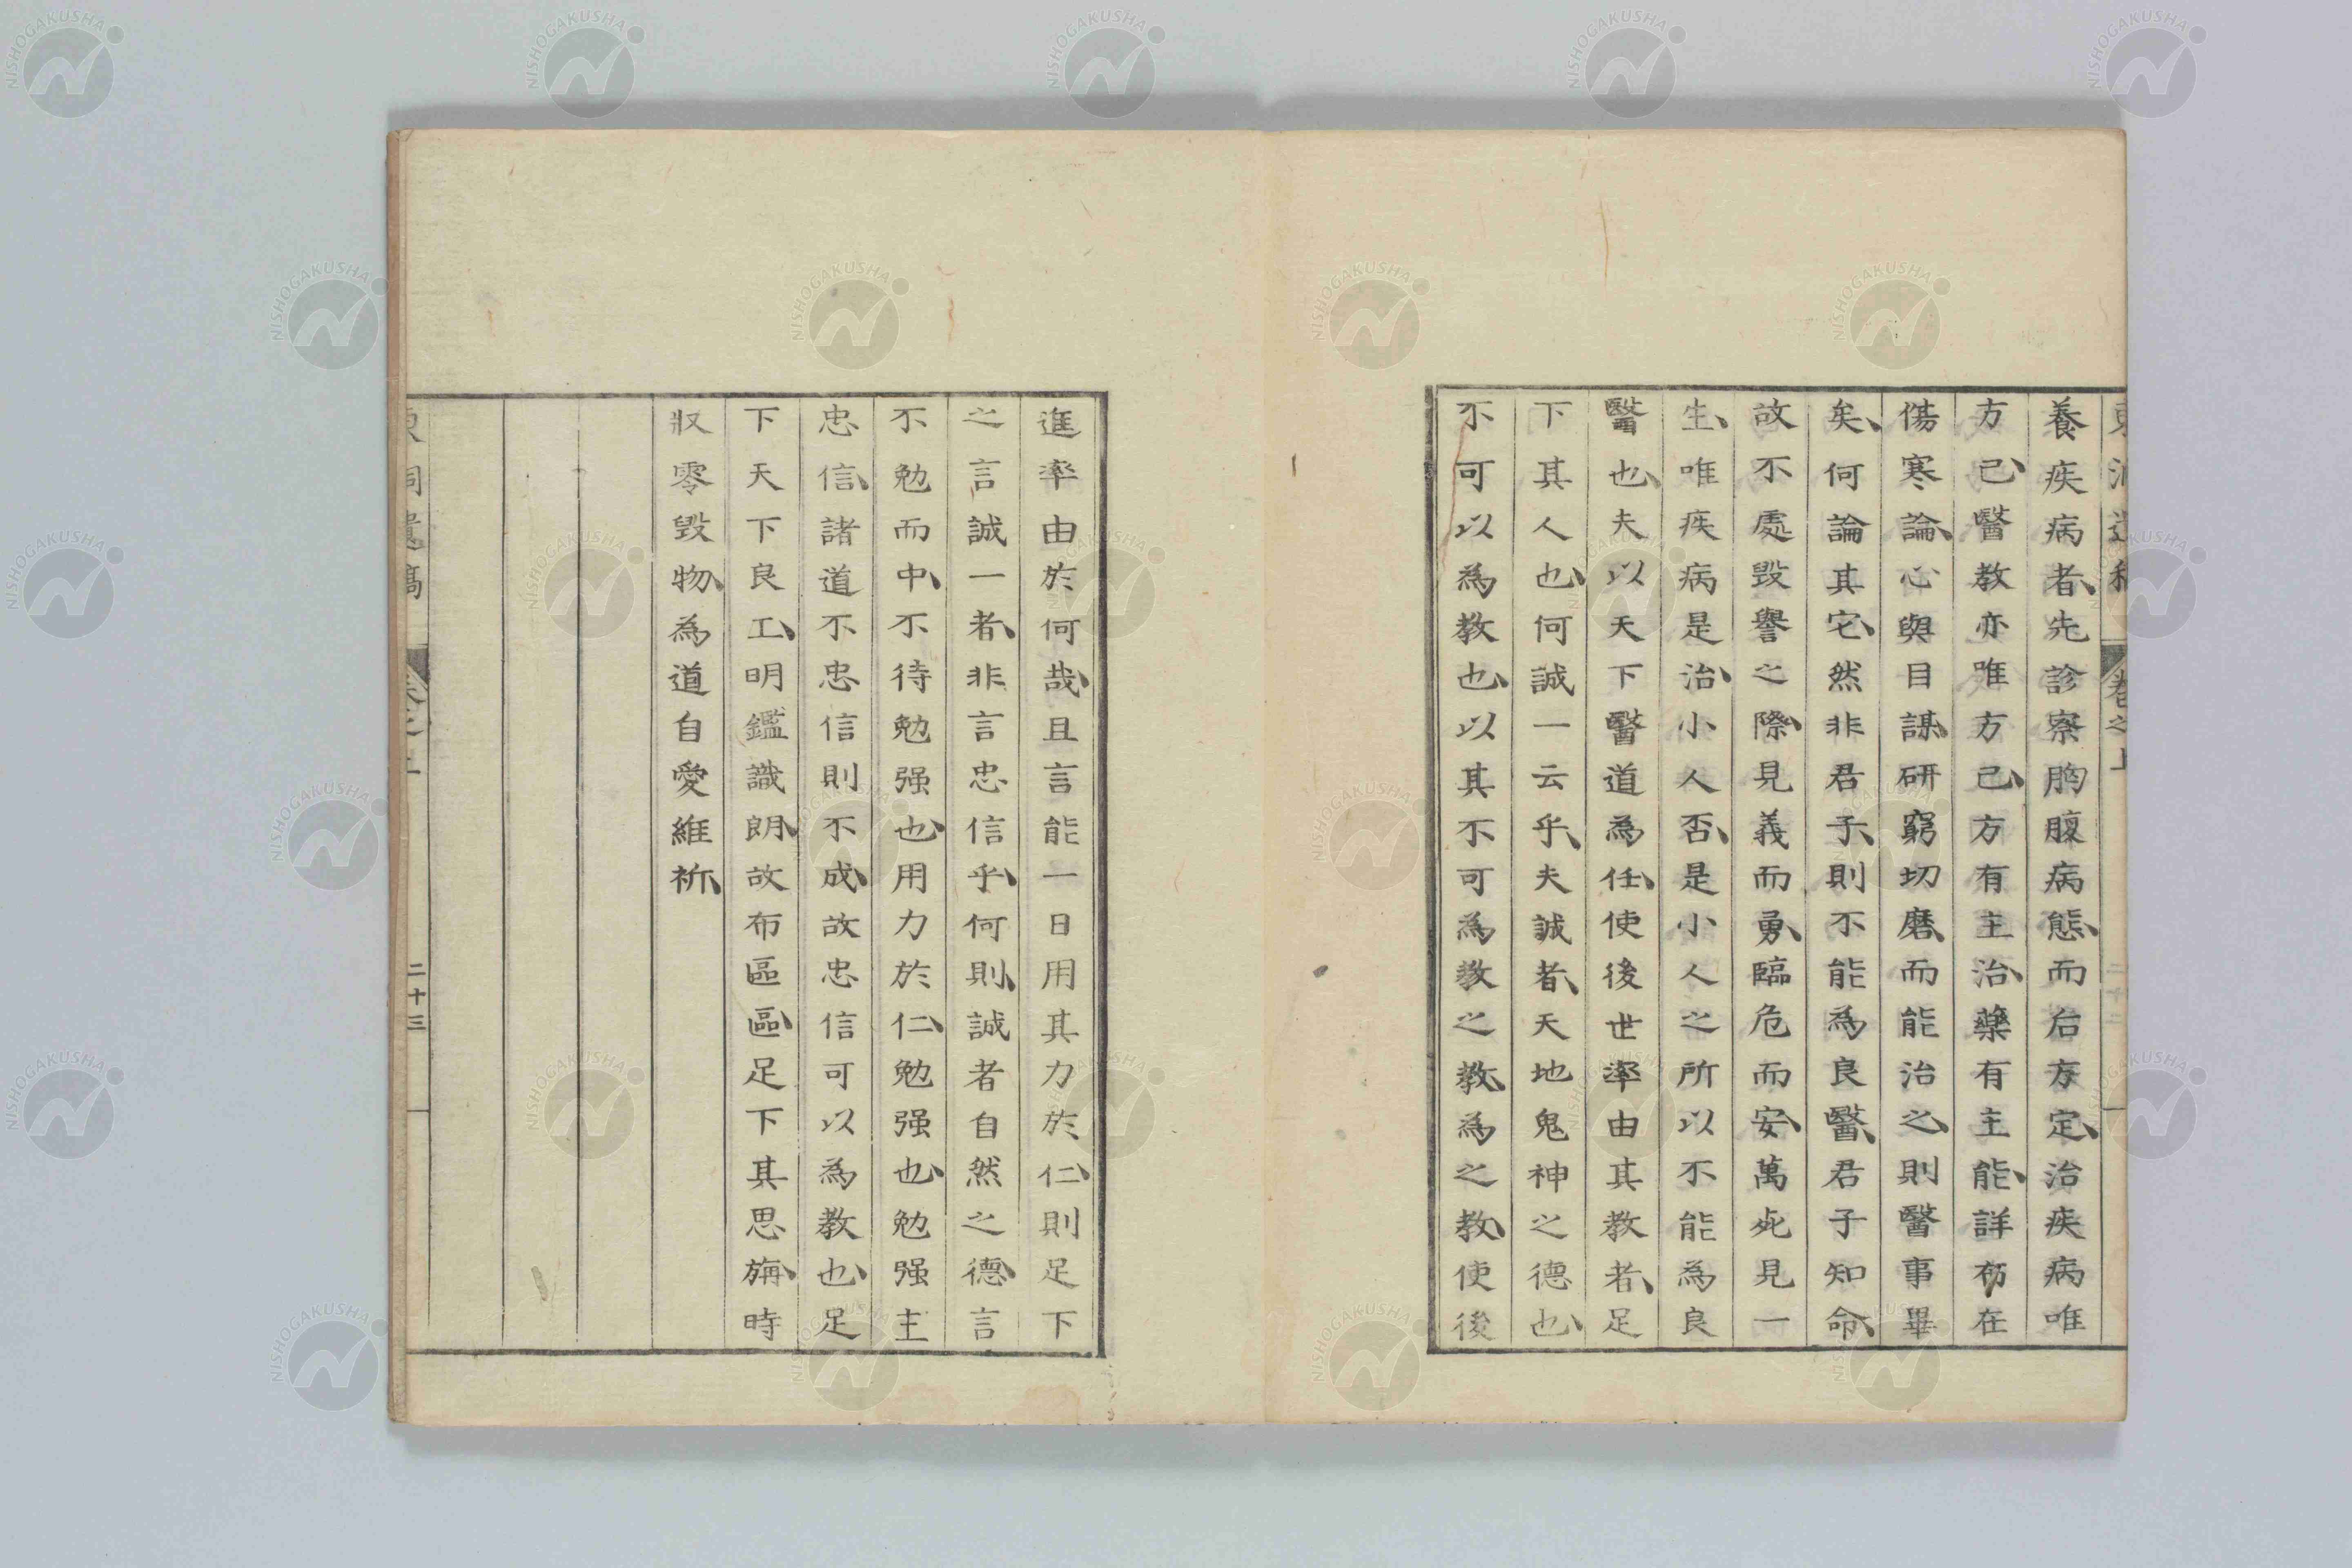 養疾病者、先診察胸腹病態、而后方定、治疾病唯
方已、醫教亦唯方已、方有主治、藥有主能、詳布在
傷寒論、心與目謀、研窮切磨、而能治之、則醫事畢
矣、何論其它、然非君子、則不能為良醫、君子知命、
故不處毀譽之際、見義而勇、臨危而安、萬死見一
生、唯疾病是治、小人否、是小人之所以不能為良
醫也、夫以天下醫道為任、使後世率由其教者、足
下其人也、何誠一云乎、夫誠者、天地鬼神之德也、
不可以為教也、以其不可為教之教、為之教、使後
進率由於何哉、且言能一日用其力於仁、則足下
之言誠一者、非言忠信乎、何則、誠者自然之德、言
不勉而中、不待勉强也、用力於仁、勉强也、勉强主
忠信、諸道不忠信則不成、故忠信可以為教也、足
下天下良工、明鑑識朗、故布區區、足下其思旃、時
収零毀物、為道自愛維祈、
東洞遺稿 卷之上 二十三